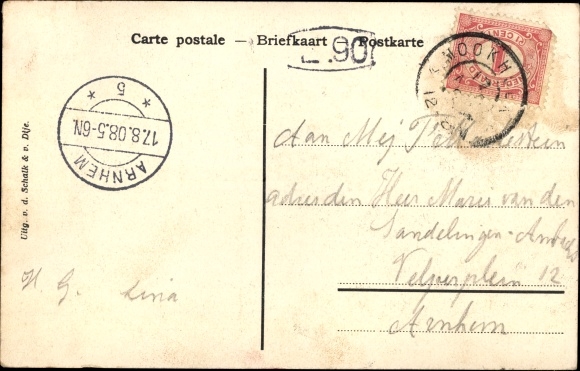 Carte postale — Briefkaart — Postkarte
L. 90
1 CENT
MOOKH
12
ARNHEM
17.8.08.5-6N.
* 5 *
Uitg. v. d. Schalk & v. Dife.
Aan Mej
adres den Heer van den
Velperplein 12
Arnhem
H G. Lina